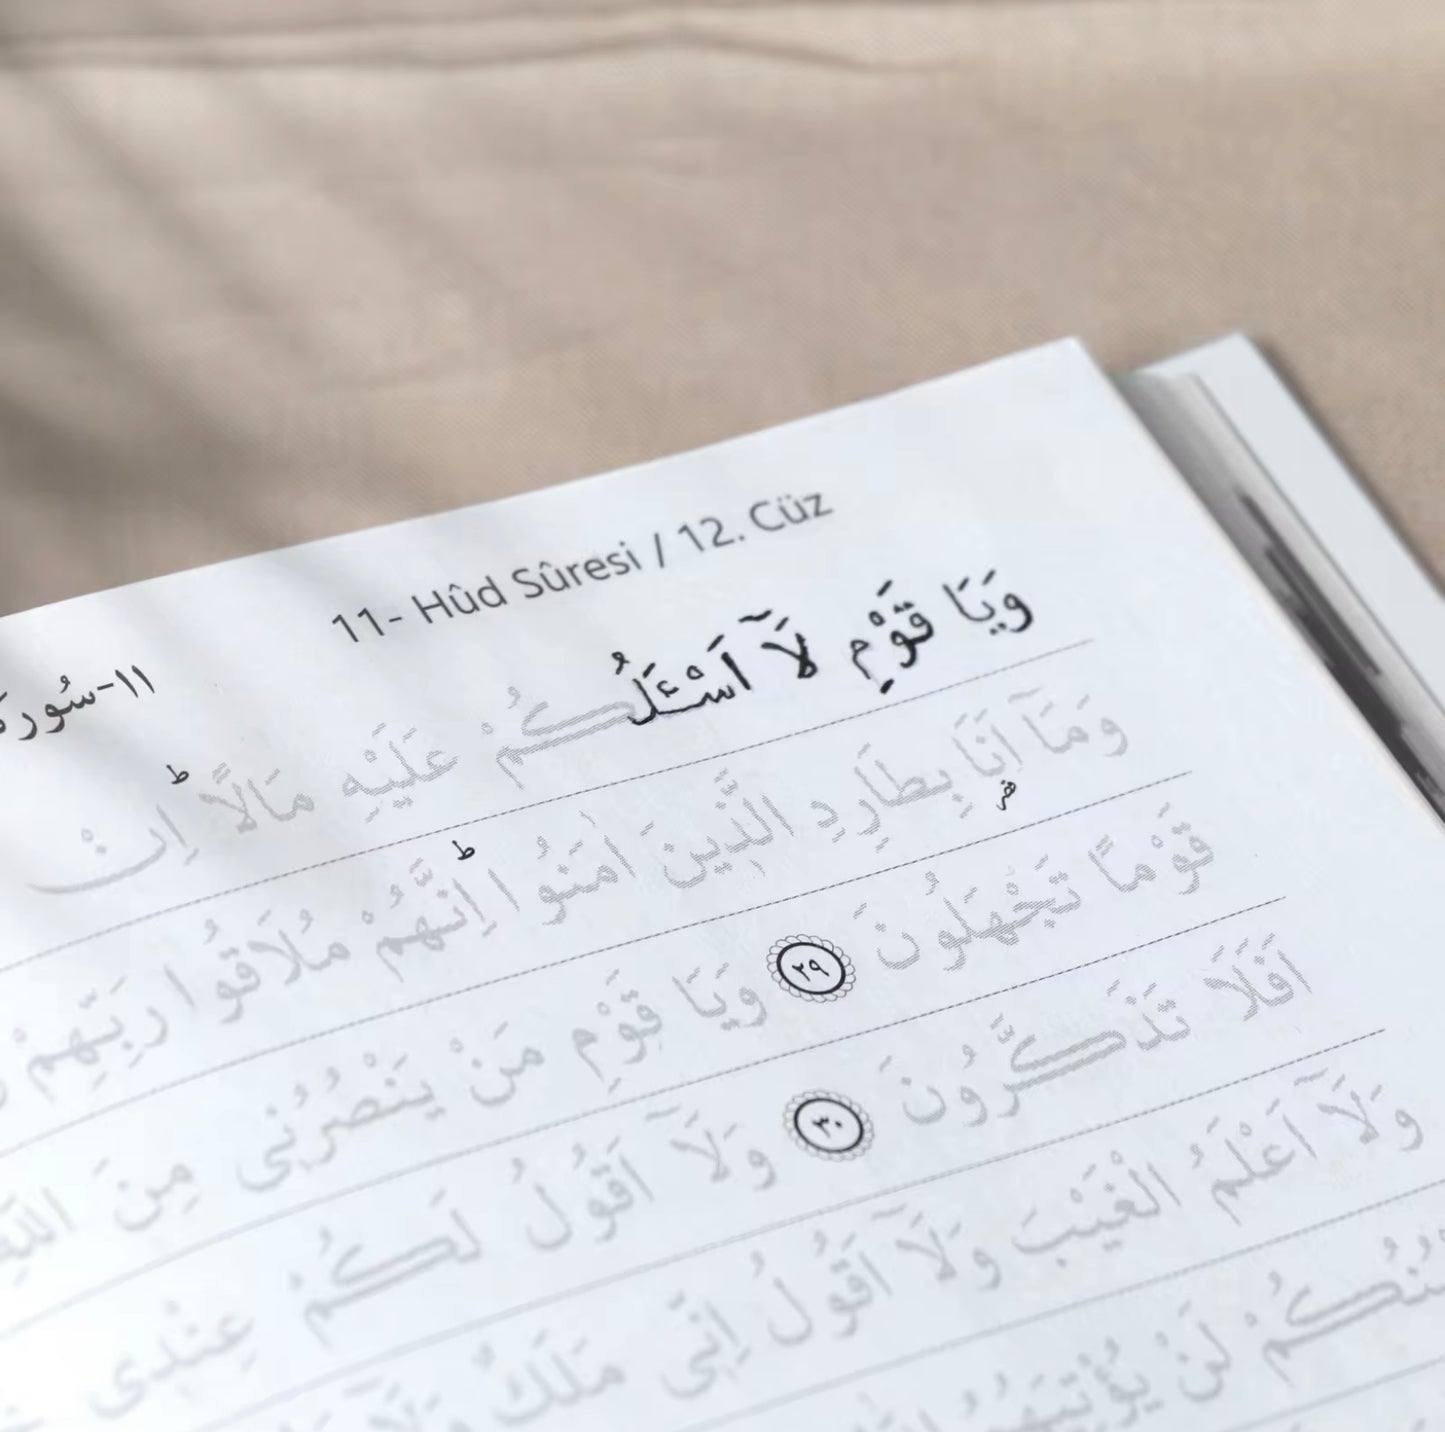 11- Hûd Sûresi / 12. Cüz
١١-سُورة
وَيَا قَوْمِ لَآ اَسْـَٔلُكُمْ عَلَيْهِ مَالًا ط اِنْ
وَمَآ اَنَا بِطَارِدِ الَّذٖينَ اٰمَنُوا ط اِنَّهُمْ مُلَاقُوا رَبِّهِمْ
قَوْمًا تَجْهَلُونَ ٢٩ وَيَا قَوْمِ مَنْ يَنْصُرُنٖى مِنَ اللّٰهِ
اَفَلَا تَذَكَّرُونَ ٣٠ وَلَآ اَقُولُ لَكُمْ عِنْدٖى
وَلَآ اَعْلَمُ الْغَيْبَ وَلَآ اَقُولُ اِنّٖى مَلَكٌ وَلَآ
لَنْ يُؤْتِيَهُمُ